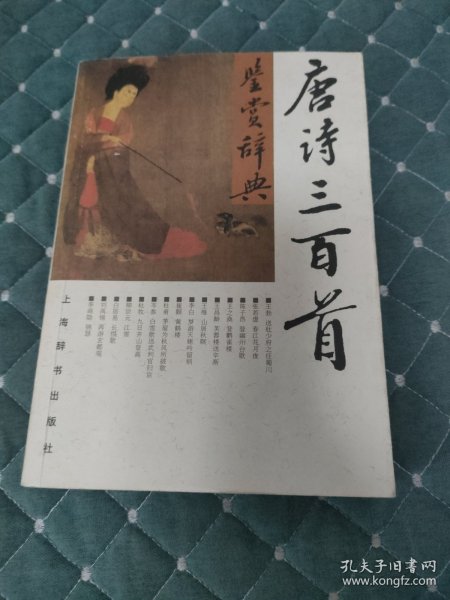 唐诗三百首
鉴赏辞典
■王勃 送杜少府之任蜀川
■张若虚 春江花月夜
■陈子昂 登幽州台歌
■王之涣 登鹳雀楼
■王昌龄 芙蓉楼送辛渐
■王维 山居秋暝
■李白 梦游天姥吟留别
■崔颢 黄鹤楼
■杜甫 茅屋为秋风所破歌
■岑参 白雪歌送武判官归京
■杜牧 九日齐山登高
■柳宗元 江雪
■白居易 长恨歌
■刘禹锡 再游玄都观
■李商隐 锦瑟
上海辞书出版社
孔夫子旧书网
www.kongfz.com